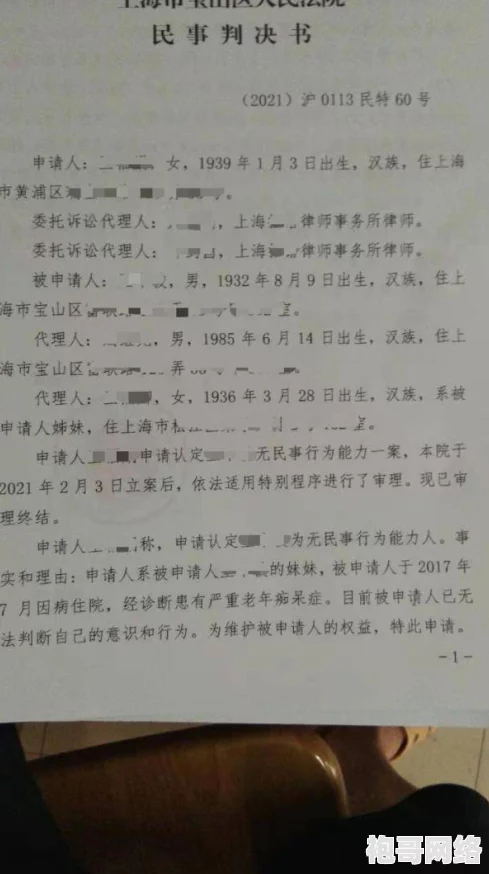 上海市宝山区人民法院
民事判决书
（2021）沪0113民特60号
申请人：女，1939年1月3日出生，汉族，住上海
市黄浦区 号。
委托诉讼代理人： ，上海 律师事务所律师。
委托诉讼代理人： ，上海 律师事务所律师。
被申请人： ，男，1932年8月9日出生，汉族，住上
海市宝山区 。
代理人： ，男，1985年6月14日出生，汉族，住上
海市宝山区 弄
代理人： ，女，1936年3月28日出生，汉族，系被
申请人姊妹，住上海市 。
申请人 申请认定 无民事行为能力一案，本院于
2021年2月3日立案后，依法适用特别程序进行了审理。现已审
理终结。
申请人 称，申请认定 为无民事行为能力人。事
实和理由：申请人系被申请人 的妹妹，被申请人于2017年
7月因病住院，经诊断患有严重老年痴呆症。目前被申请人已无
法判断自己的意识和行为。为维护被申请人的权益，特此申请。
-1-
袍哥网络